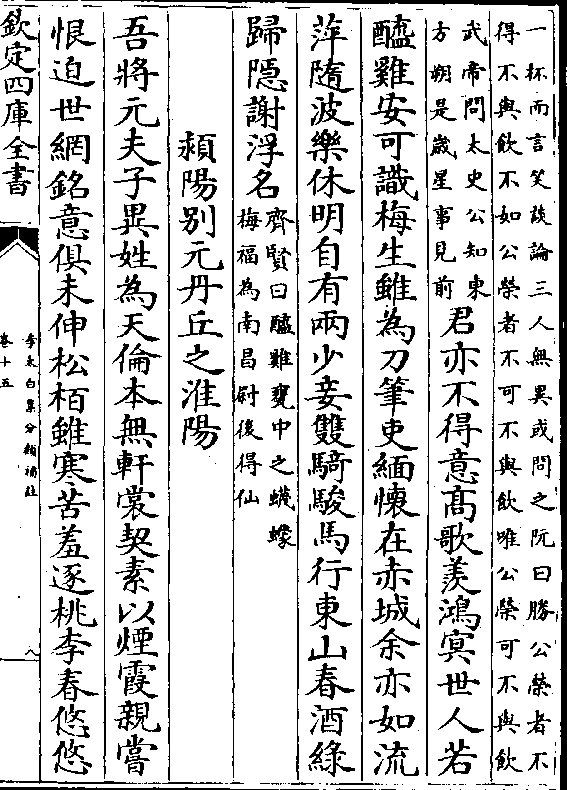 一杯而言笑談論三人無異或問之阮曰勝公榮者不
得不與飲不如公榮者不可不與飲唯公榮可不與飲
武帝問太史公知東
方朔是歲星事見前
君亦不得意髙歌羨鴻㝠世人若
醯雞安可識梅生雖為刀筆吏緬懷在赤城余亦如流
萍隨波樂休明自有兩少妾雙騎駿馬行東山春酒緑
歸隠謝浮名
齊賢曰醯雞甕中之蠛蠓
梅福為南昌尉後得仙
潁陽别元丹丘之淮陽
吾將元夫子異姓為天倫本無軒裳契素以煙霞親嘗
恨迫世網銘意俱未伸松栢雖寒苦羞逐桃李春悠悠
欽定四庫全書
李太白集分類補註
卷十五
八